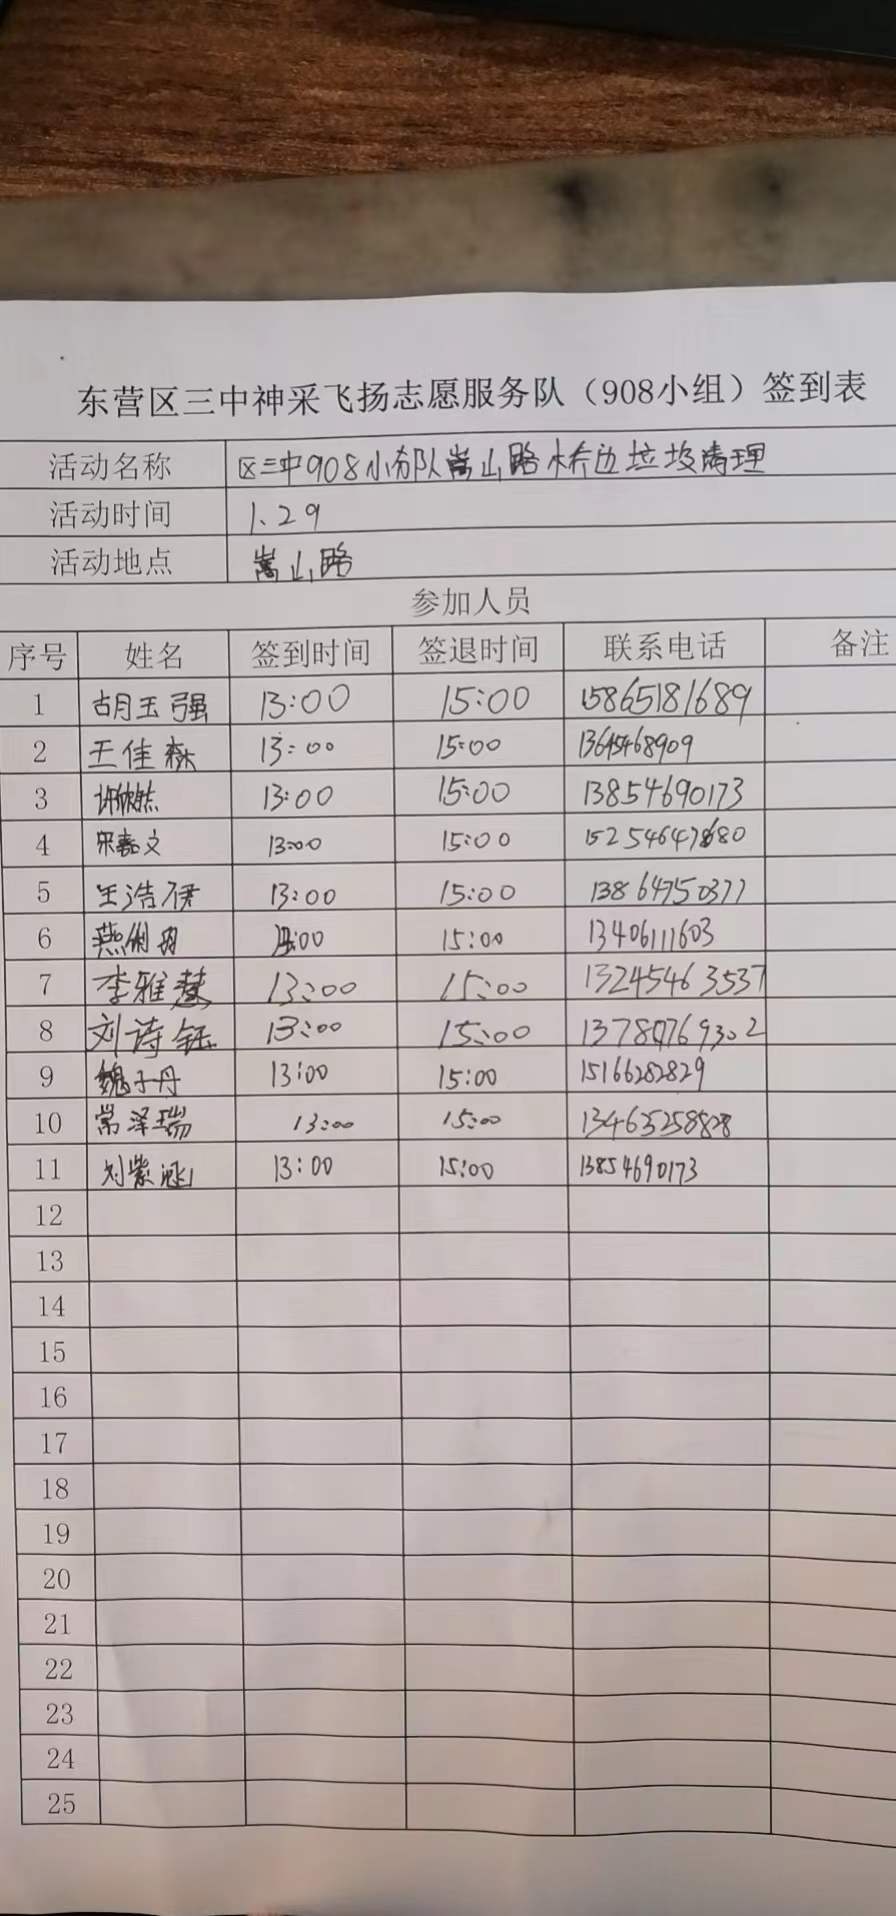 东营区三中神采飞扬志愿服务队（908小组）签到表
活动名称 区三中908小分队嵩山路桥边垃圾清理
活动时间 1.29
活动地点 嵩山路
参加人员
序号 姓名 签到时间 签退时间 联系电话 备注
1 胡玉强 13:00 15:00 15865181689
2 王佳森 13:00 15:00 13645468909
3 13:00 15:00 13854690173
4 宋嘉文 13:00 15:00
5 王浩伊 13:00 15:00 13864750377
6 15:00 13406111603
7 李雅慧 13:00 15:00 13245463537
8 刘诗钰 13:00 15:00
9 魏子丹 13:00 15:00 15166282829
10 常泽瑞 13:00 15:00
11 刘紫涵 13:00 15:00 13854690173
12
13
14
15
16
17
18
19
20
21
22
23
24
25